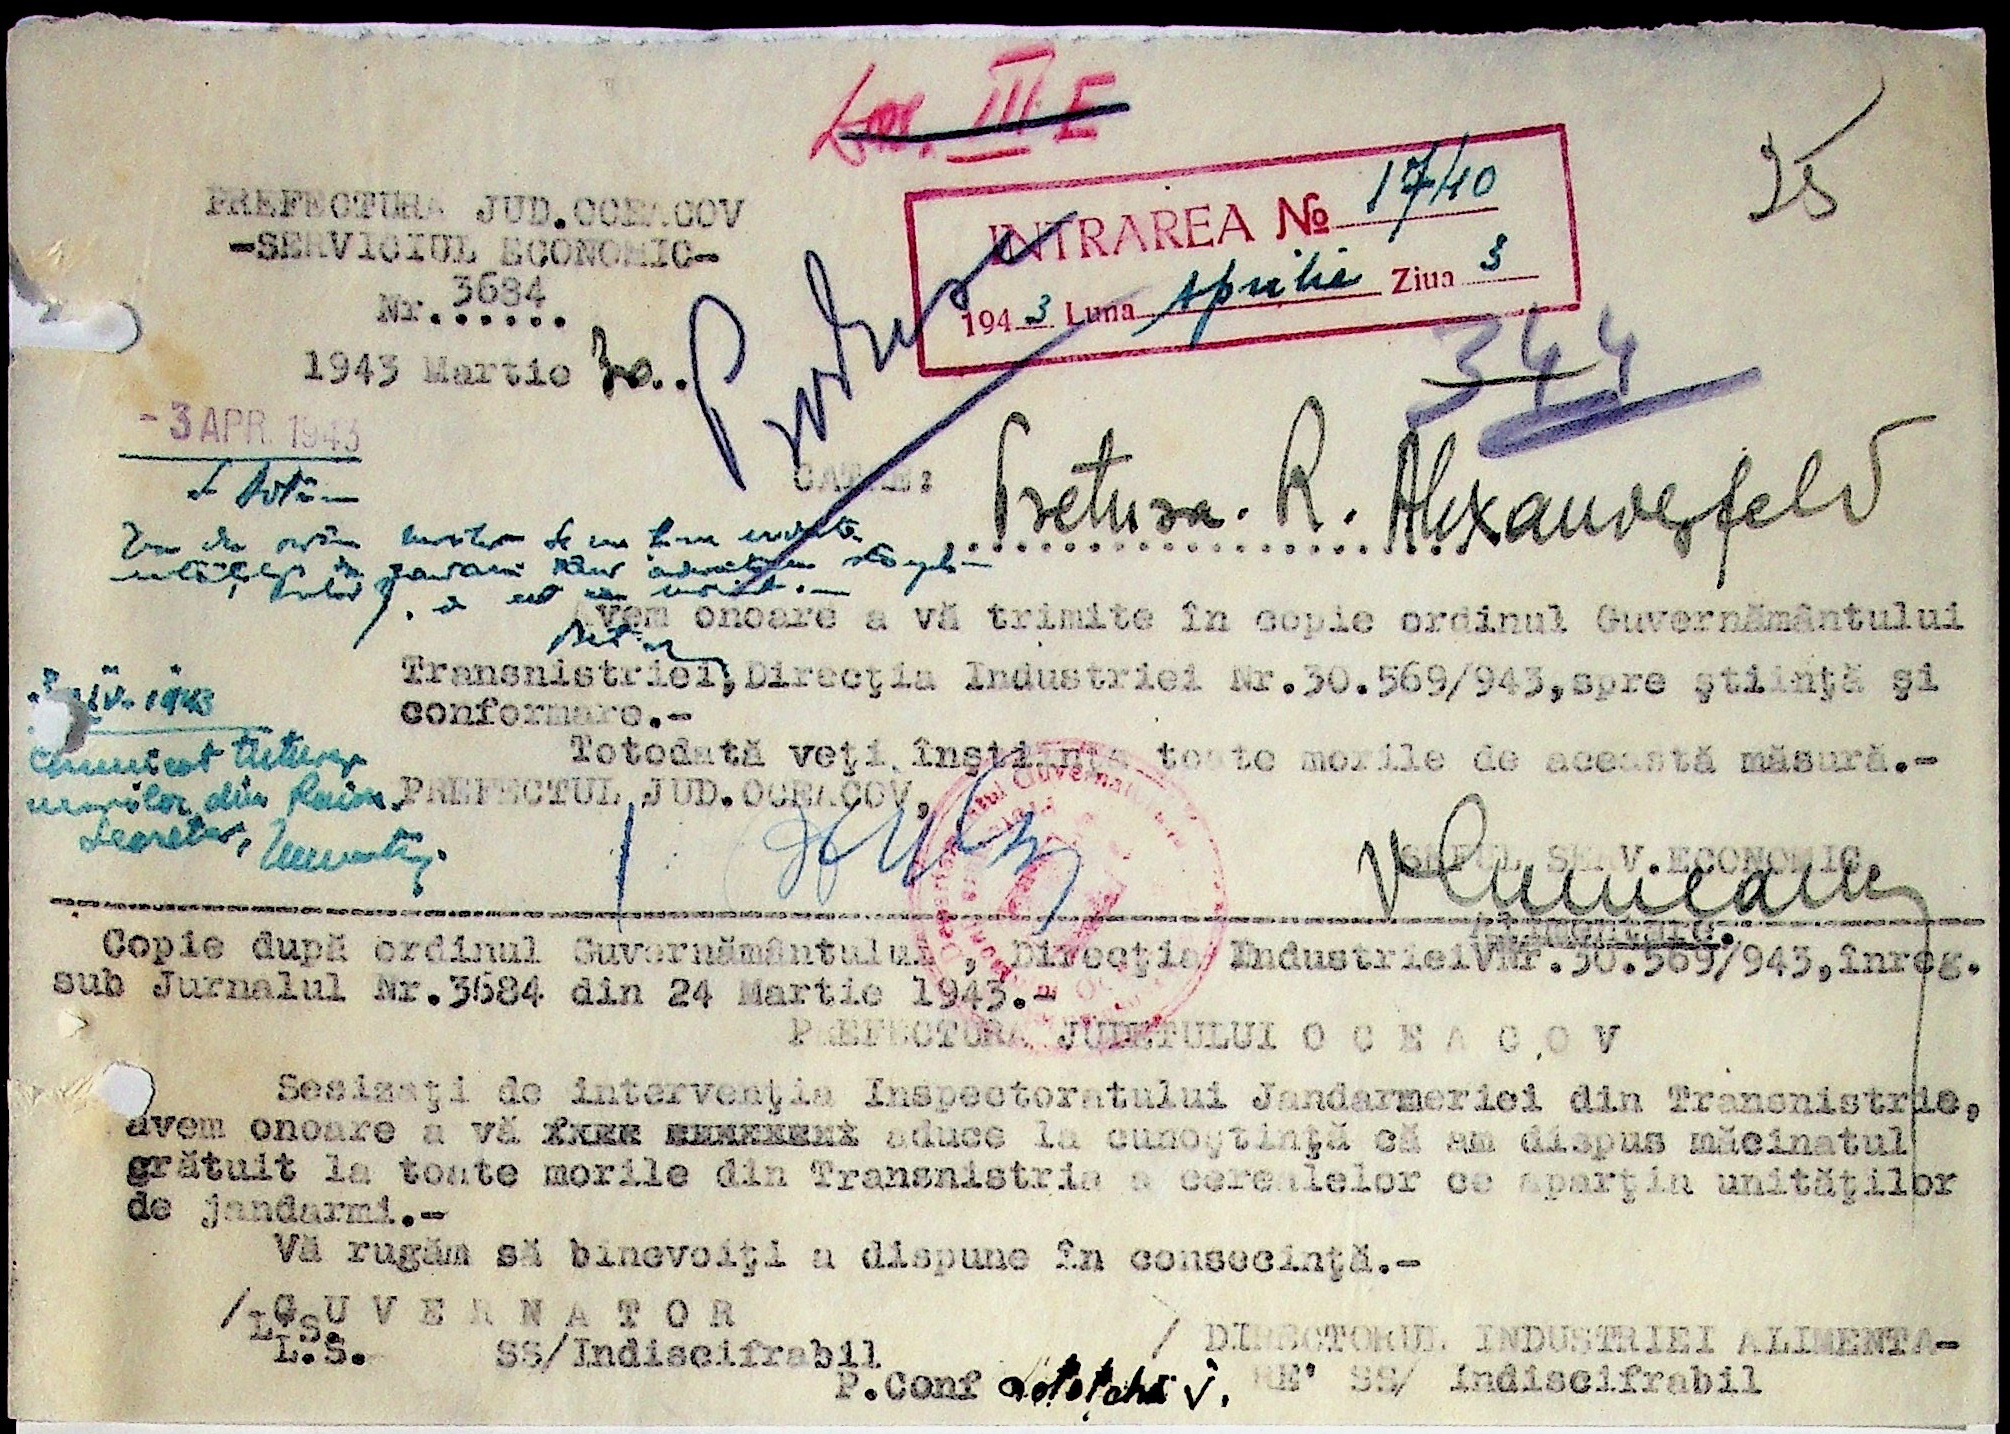 III E
25
PREFECTURA JUD.OCEACOV
-SERVICIUL ECONOMIC-
Nr. 3684
1943 Martie 30..
INTRAREA № 1740
1943 Luna Aprilie Ziua 3
344
- 3 APR. 1943
CATRE:
Pretura. R. Alexanderfeld
Avem onoare a vă trimite în copie ordinul Guvernământului
Transnistriei, Direcţia Industriei Nr.30.569/943, spre ştiinţă şi
conformare.-
Totodată veţi înştiinţa toate morile de această măsură.-
IV. 1943
Comunicat tuturor
morilor din Raion.
Secretar,
PREFECTUL JUD.OCEACOV,
ŞEFUL SERV.ECONOMIC
Copie după ordinul Guvernământului, Direcţia Industriei Nr.30.569/943, înreg.
sub Jurnalul Nr.3684 din 24 Martie 1943.-
PREFECTURA JUDETULUI O C E A C O V
Sesizaţi de intervenţia Inspectoratului Jandarmeriei din Transnistria,
avem onoare a vă aduce la cunoştinţă că am dispus măcinatul
grătuit la toate morile din Transnistria a cerealelor ce aparţin unităţilor
de jandarmi.-
Vă rugăm să binevoiţi a dispune în consecinţă.-
/ G U V E R N A T O R
L.S.
L.S. SS/Indiscifrabil
/ DIRECTORUL INDUSTRIEI ALIMENTA-
RE' SS/ Indiscifrabil
P.Conf